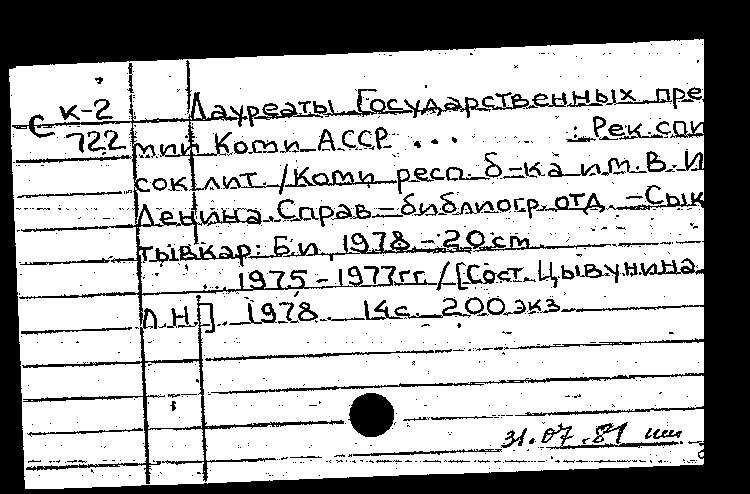 С К-2 Лауреаты Государственных пре
722 мии Коми АССР ... : Рек.спи
сок лит. /Коми респ. б-ка им.В.И
Ленина.Справ-библиогр.отд. -Сык
тывкар: Б.и, 1978.-20см
... 1975-1977гг./[Сост. Цывунина
Л.Н.]. 1978. 14с. 200экз
31.07.81